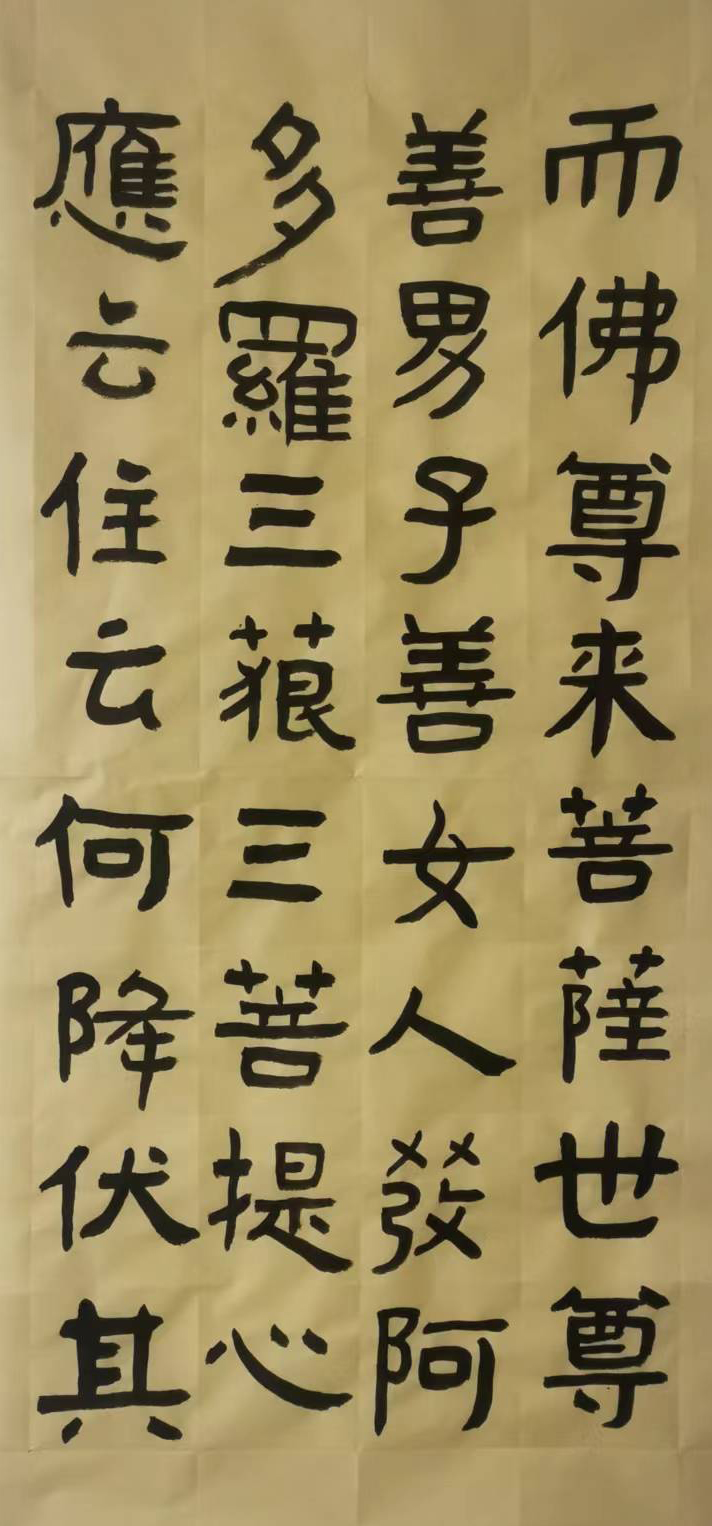 而佛尊来菩薩世尊
善男子善女人發阿
多羅三蒗三菩提心
應云住云何降伏其